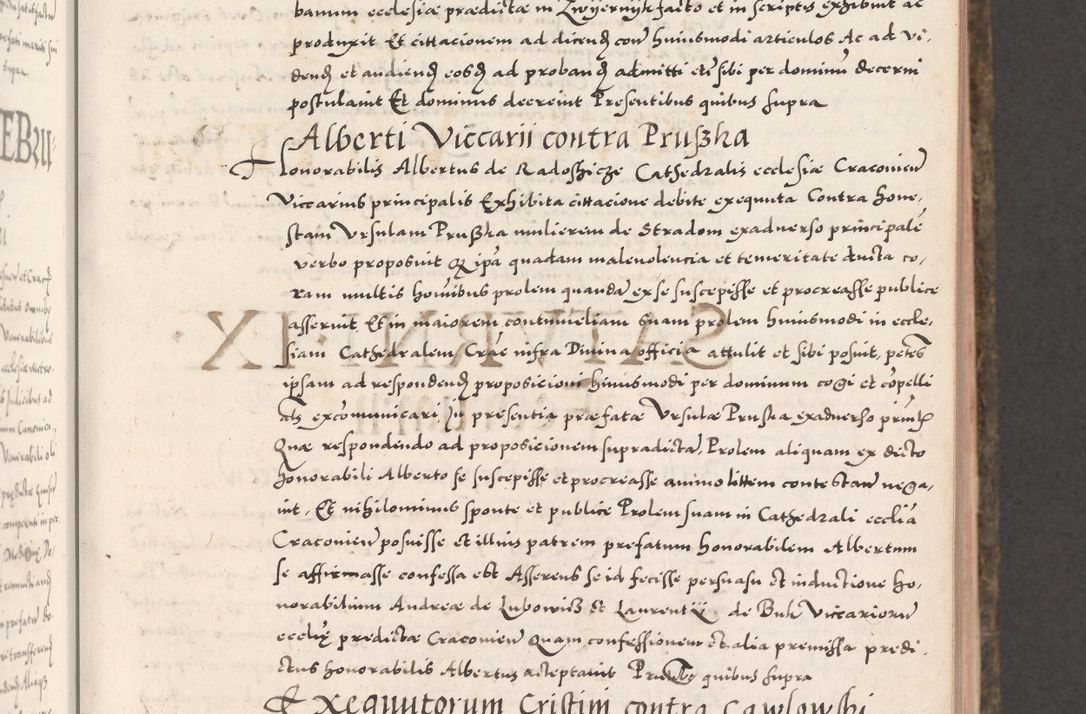 banum ecclesiæ prædictæ in Zwyernyk facto et in scriptis exhibuit ac
produxit Et cittacionem ad dicend contra huiusmodi articulos Ac ad vi-
dend et audiend eosd ad proband admitti etc sibi per dominū decerni
postulauit Et dominus decreuit Presentibus quibus supra
Alberti Viccarii contra Prußka
Honorabilis Albertus de Radoszicze Cathedralis ecclesiæ Cracouien
Viccarius principalis Exhibita cittacione debite exequuta Contra hone-
stam Vrsulam Prußka mulierem de Stradom exaduerso principalē
verbo proposuit Q ipā quadam maleuolencia et temeritate ducta co-
ram multis hoīnibus prolem quandā ex se suscepisse et procreasse publice
asseruit. Et in maiorem contumeliam suam prolem huiusmodi in eccle-
siam Cathedralem Cracē infra Diuina officia attulit et sibi posuit, petēs
ipsam ad respondend proposicioni huiusmodi per dominum cogi et cōpelli
als excōmunicari In presentia præfatæ Vrsulæ Prußka exaduerso prin
Quæ respondendo ad proposicionem supradictā, Prolem aliquam ex dicto
honorabili Alberto se suscepisse et procreasse animo littem contestan nega-
uit, Et nihilominus sponte et publice Prolem suam in Cathedrali ecclīa
Cracouien posuisse et illius patrem prefatum honorabilem Albertum
se affirmasse confessa est Asserens se id fecisse persuasu et inductione ho-
norabilium Andreæ de Lubowicz et Laurentij de Buk Viccariorū
eccliæ predictæ Cracouien Quam confessionem et alia premissa predi-
ctus honorabilis Albertus acceptauit Pntibus quibus supra
Exequutorum Cristini contra Gawlowski